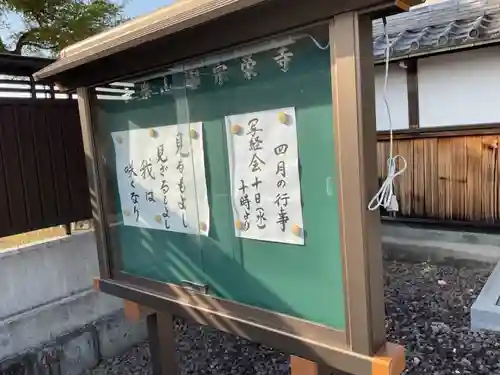 宗栄寺
四月の行事
写経会 十日(水)
十時
見るもよし
見ざるもよし
我は
咲くなり